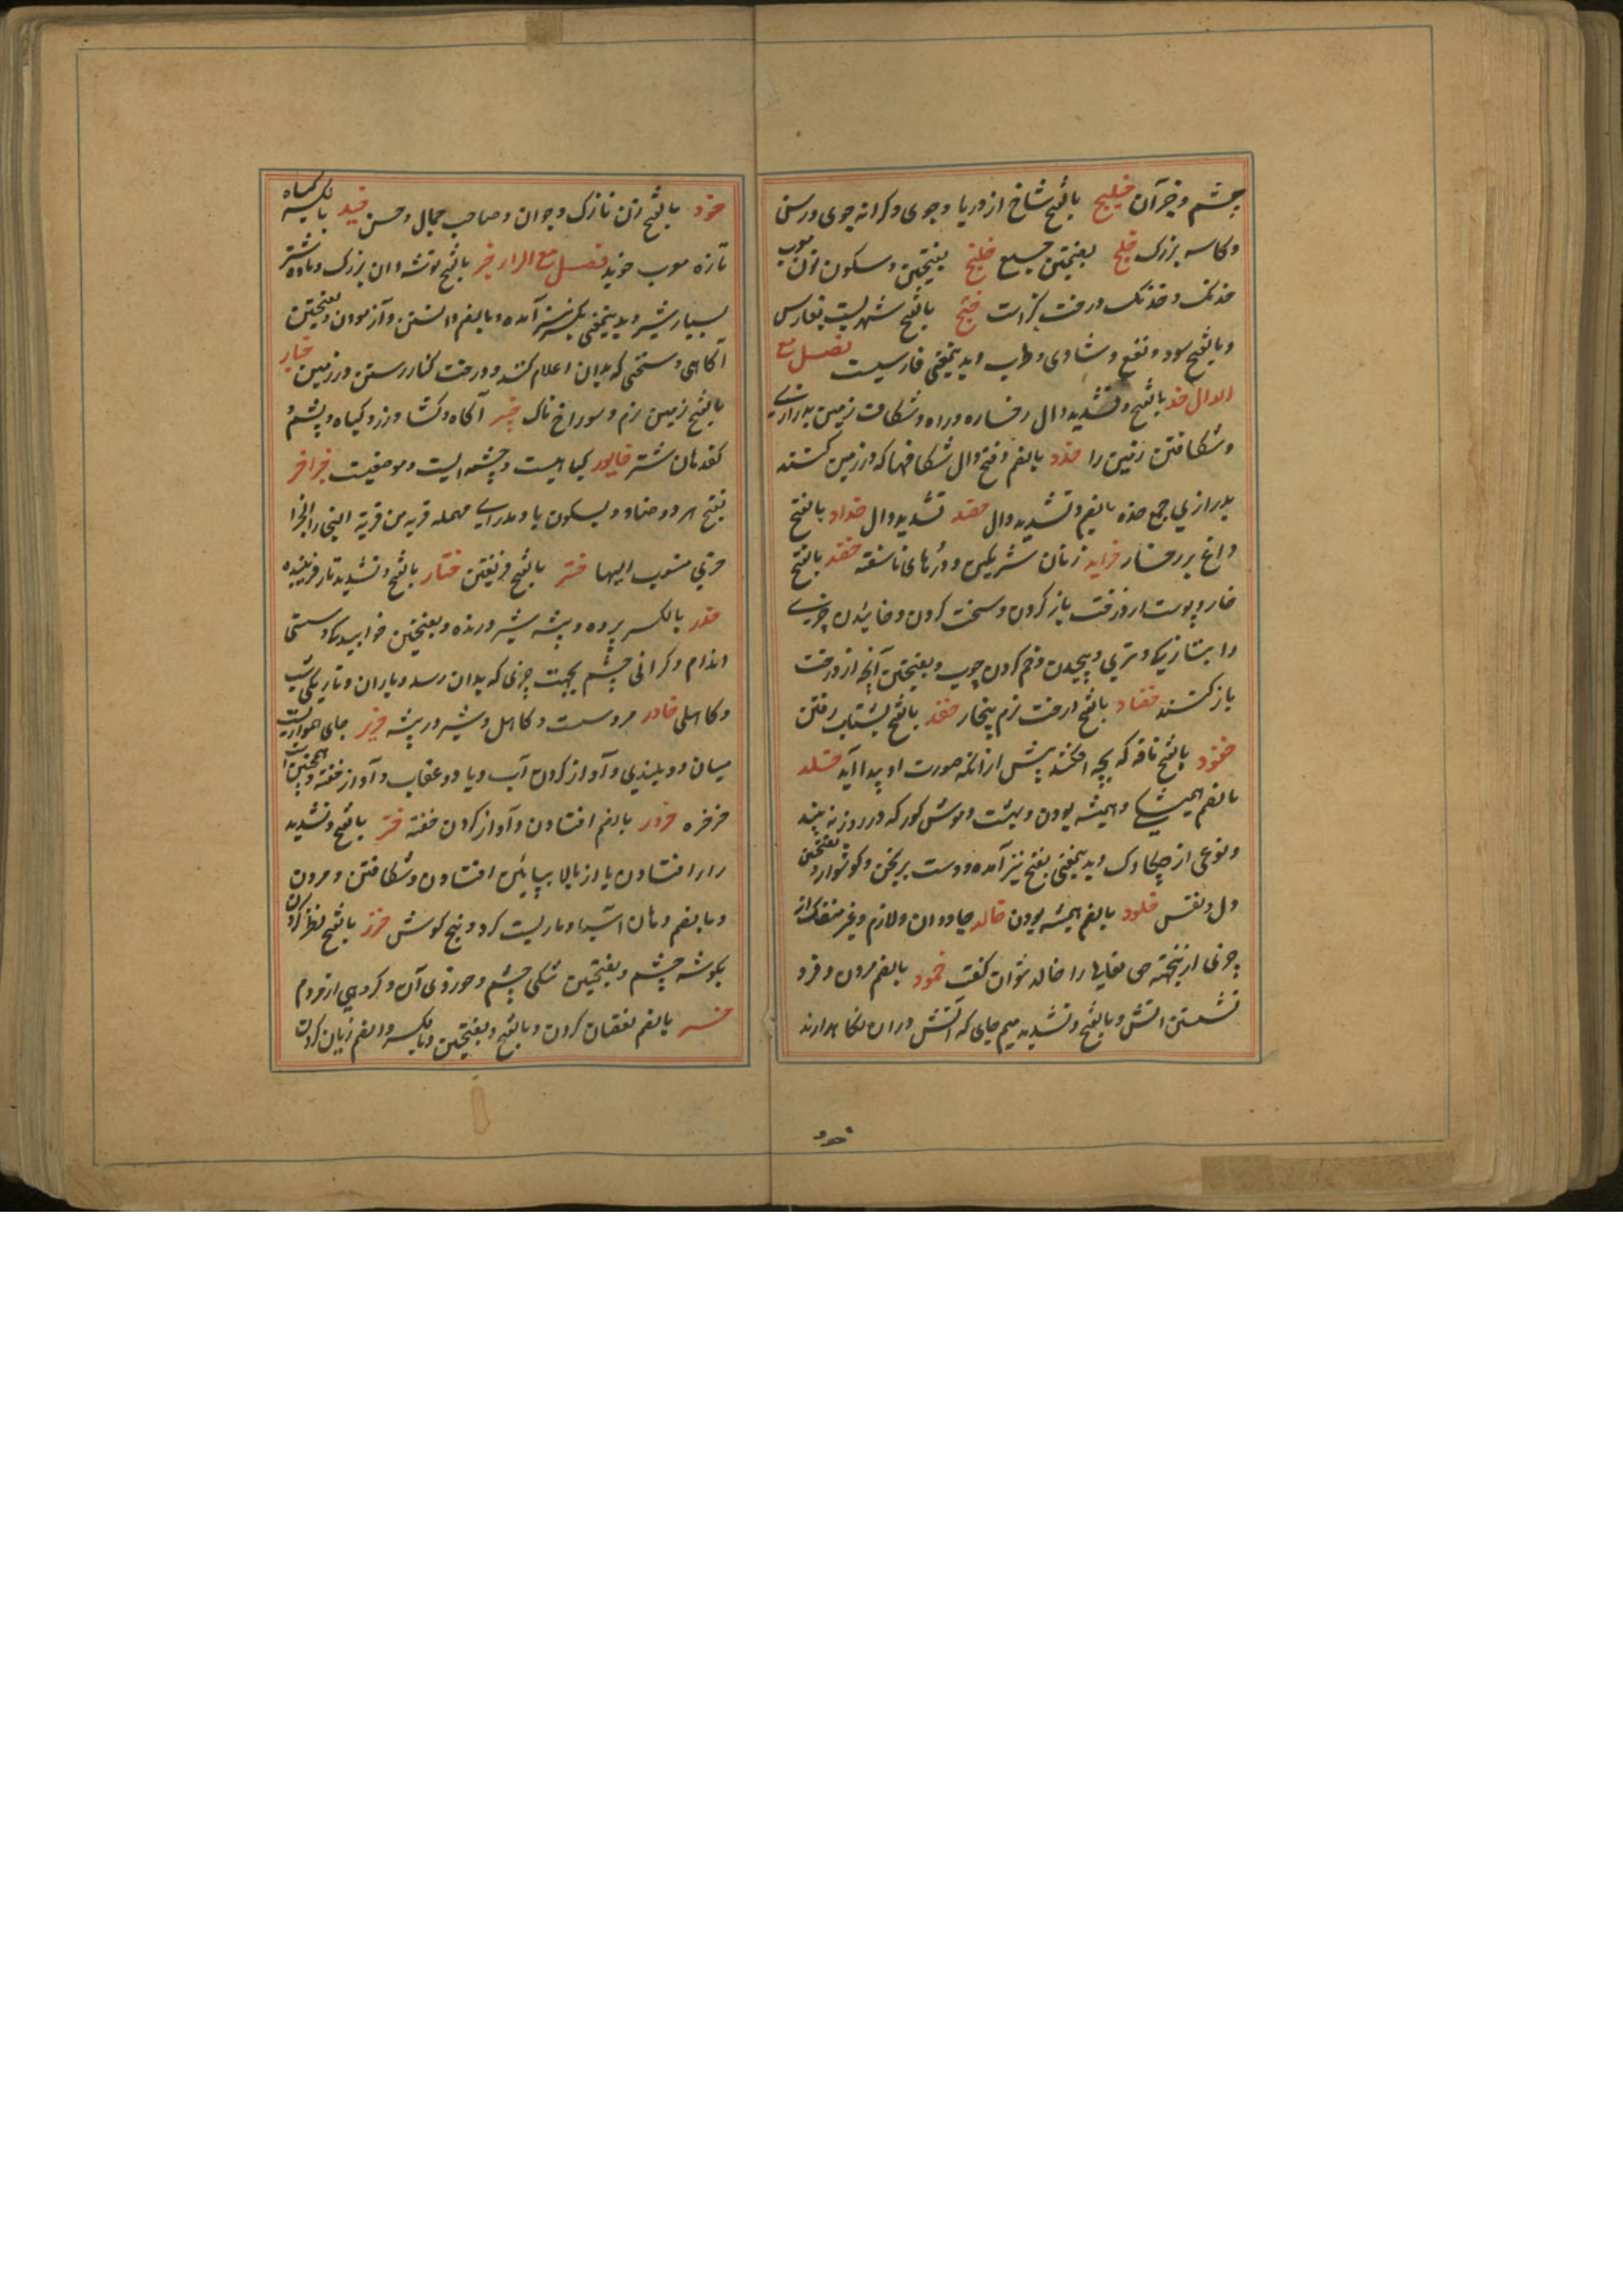 چشم و جز آن خلیج بالفتح شاخ از دریا و جوی و کرانه جوی و رسن
و کاسه بزرک خلج بفتحتین جمع خلنج بفتحتین و سکون نون معرب
خدنک و خدنک درخت کز است خنج بالفتح شهریست بفارس
و بالفتح سود و نفع و شادی و طرب و بدینمعنی فارسیست فصل مع
الدال خد بالفتح و تشدید دال رخساره و راه و شکافت زمین بدرازی
و شکافتن زمین را خدد بالضم و فتح دال شکافها که در زمین کنند
بدرازی جمع خده بالضم و تشدید دال تشدید دال خداد بالفتح
داغ بر رخسار خراید زنان شرمکین و درهای ناسفته خضد بالفتح
خار و پوست از درخت باز کردن و سخت کردن و خائیدن چیزی
را بتازیکی و تری و پیچیدن و خم کردن چوب و بفتحتین آنچه از درخت
باز کنند خضاد بالفتح درخت نرم بیخار خفد بالفتح بشتاب رفتن
خفود بالفتح ناقه که بچه افکند پیش از انکه صورت او پیدا آید خلد
بالضم همیشکی و همیشه بودن و بهشت و موش کور که در روز نه بیند
و نوعی از چکاوک و بدینمعنی بفتح نیز آمده و دست برنجن و کوشواره و بفتحتین
دل و نفس خلود بالضم همیشه بودن خالد جاودان و لازم و غیر منفک از
چیزی ازینجهته حی تعالی را خالد نتوان کفت خمود بالضم مردن و فرو
نشستن اتش و بالفتح و تشدید میم جای که آتش دران نکاهدارند
خود
خود بالفتح زن نازک و جوان و صاحب جمال و حسن خید بالکسر کیاه
تازه معرب خوید فصل مع الراء خبر بالفتح توشه دان بزرک و ماده شتر
بسیار شیر و بدینمعنی بکسر نیز آمده و بالضم دانستن و آزمودن و بفتحتین
آکاهی و سخنی که بدان اعلام کنند و درخت کنار رستن در زمین خبار
بالفتح زمین نرم و سوراخ ناک خبیر آکاه و کشاورز و کیاه و پشم و
کف دهان شتر خابور کیاهیست و چشمه ایست و موضعیست خرا خر
بفتح هر دو خا و و بسکون یا و رای مهمله قریه من قریة
خری منسوب الیها ختر بالفتح فریفتن ختار بالفتح و تشدید تا فریبنده
خدر بالکسر پرده و بیشه شیر درنده و بفتحتین خوابیدکی و سستی
اندام و کرانی چشم بجهت چیزی که بدان رسد و باران و تاریکی شب
و کاهلی خادر مرد سست و کاهل و شیر در بیشه خریر جای هموار پست
میان دو بلندی و آواز کردن آب و باد و عقاب و آواز خفته و همچنین است
خرخره خرور بالضم افتادن و آواز کردن خفته خر بالفتح و تشدید
را افتادن یا از بالا بپایین افتادن و شکافتن و مردن
و بالضم دهان اسیا و مار پست کرد و بیخ کوش خزر بالفتح نظر کردن
بکوشه چشم و بفتحتین تنکی چشم و خوردی آن و کروهی از مردم
خسر بالضم نقصان کردن و بالفتح و بفتحتین و بالکسر و الضم زیان کردن